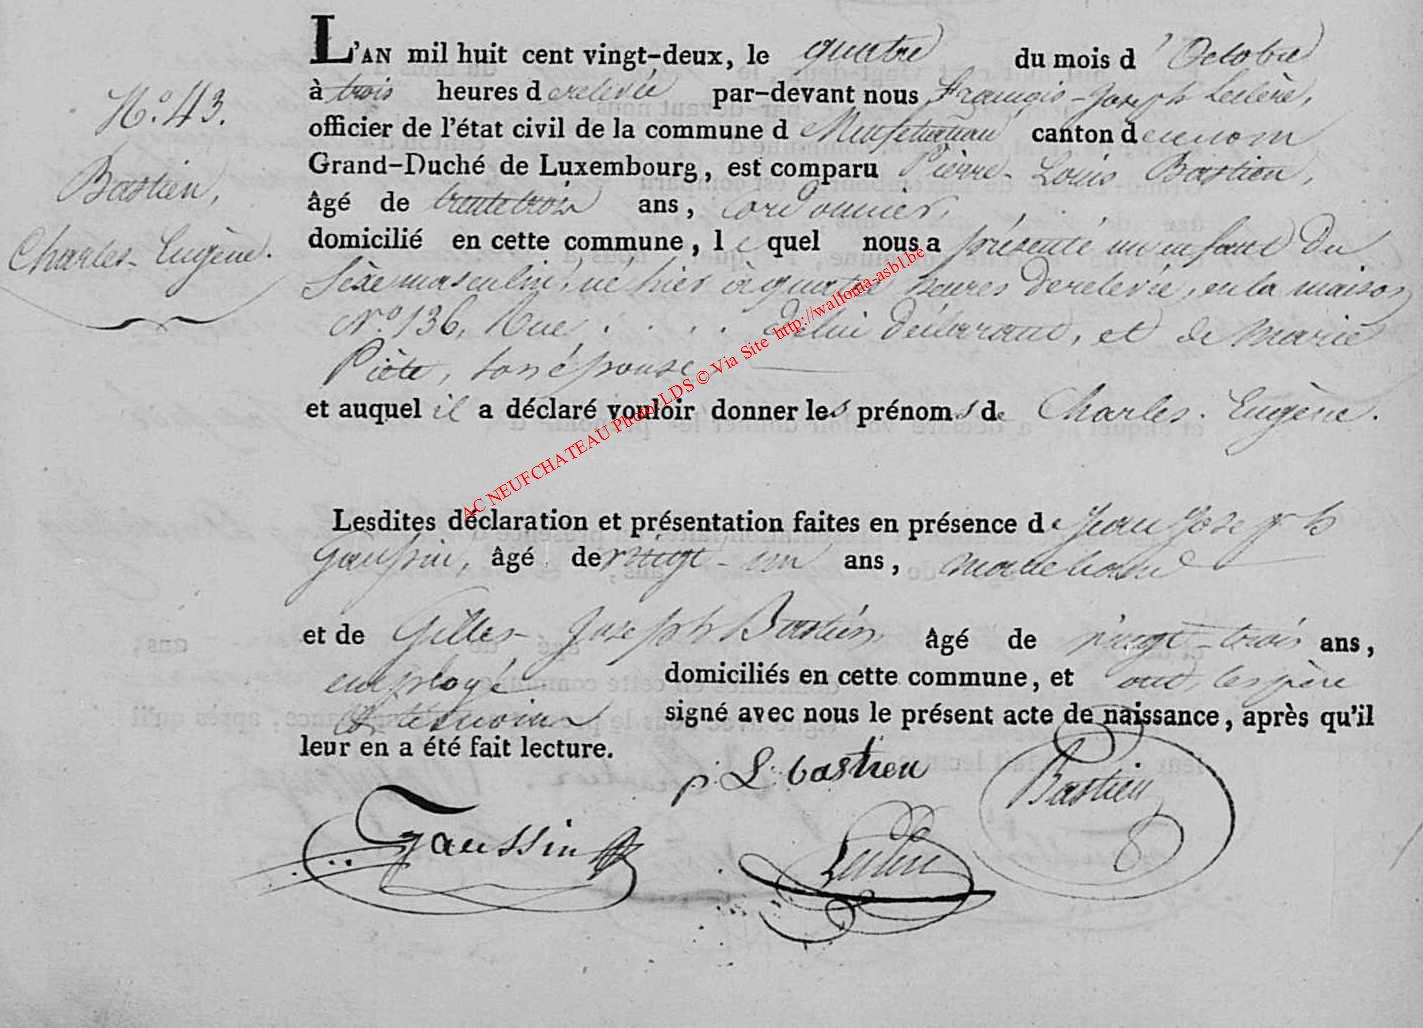 L'AN mil huit cent vingt-deux, le quatre du mois d'Octobre
à trois heures de relevée par-devant nous François-Joseph Leclère,
N.º 43.
officier de l'état civil de la commune de Neufchateau canton dunom
Grand-Duché de Luxembourg, est comparu Pierre-Louis Bastien,
Bastien,
âgé de trente trois ans, cordonnier,
Charles-Eugène.
domicilié en cette commune, lequel nous a présenté un enfant du
Sexe masculin, né hier à quatre heures de relevée, en la maison
N.º 136, Rue . . . . . de lui déclarant, et de Marie
Piète, son épouse
et auquel il a déclaré vouloir donner les prénoms de Charles-Eugène.
AC NEUFCHATEAU Photo LDS © Via Site http://walloma-asbl.be
Lesdites déclaration et présentation faites en présence de Jean Joseph
Gaussin, âgé de vingt-un ans, marechand
et de Gilles-Joseph Bastien âgé de vingt-trois ans,
employé domiciliés en cette commune, et ont, les père
et témoins signé avec nous le présent acte de naissance, après qu'il
leur en a été fait lecture.
p. L. bastien
Bastien
Gaussin
Leclère